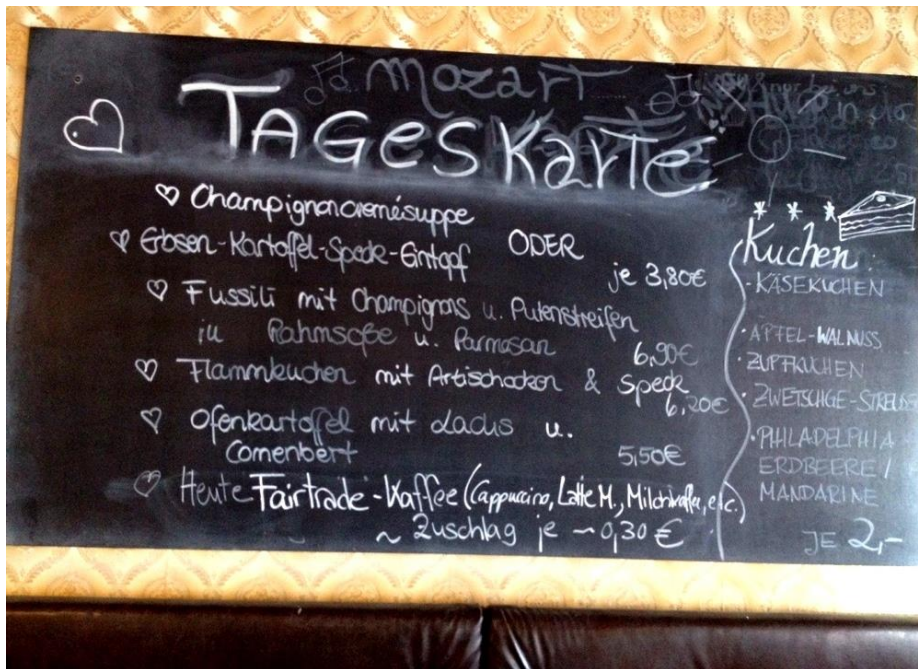 mozart
TAGESKARTE
Champignoncremésuppe
ODER
Erbsen-Kartoffel-Speck-Eintopf
je 3,80€
Fussili mit Champignons u. Putenstreifen
in Rahmsoße u. Parmasan
6,90€
Flammkuchen mit Artischocken & Speck
6,20€
Ofenkartoffel mit Lachs u.
Camenbert
5,50€
Heute Fairtrade-Kaffee (Cappuccino, Latte M., Milchkaffee, etc.)
~ Zuschlag je ~ 0,30 €
* * *
Kuchen:
- KÄSEKUCHEN
· APFEL-WALNUSS
· ZUPFKUCHEN
· ZWETSCHGE-STREUSEL
· PHILADELPHIA
ERDBEERE /
MANDARINE
JE 2,-